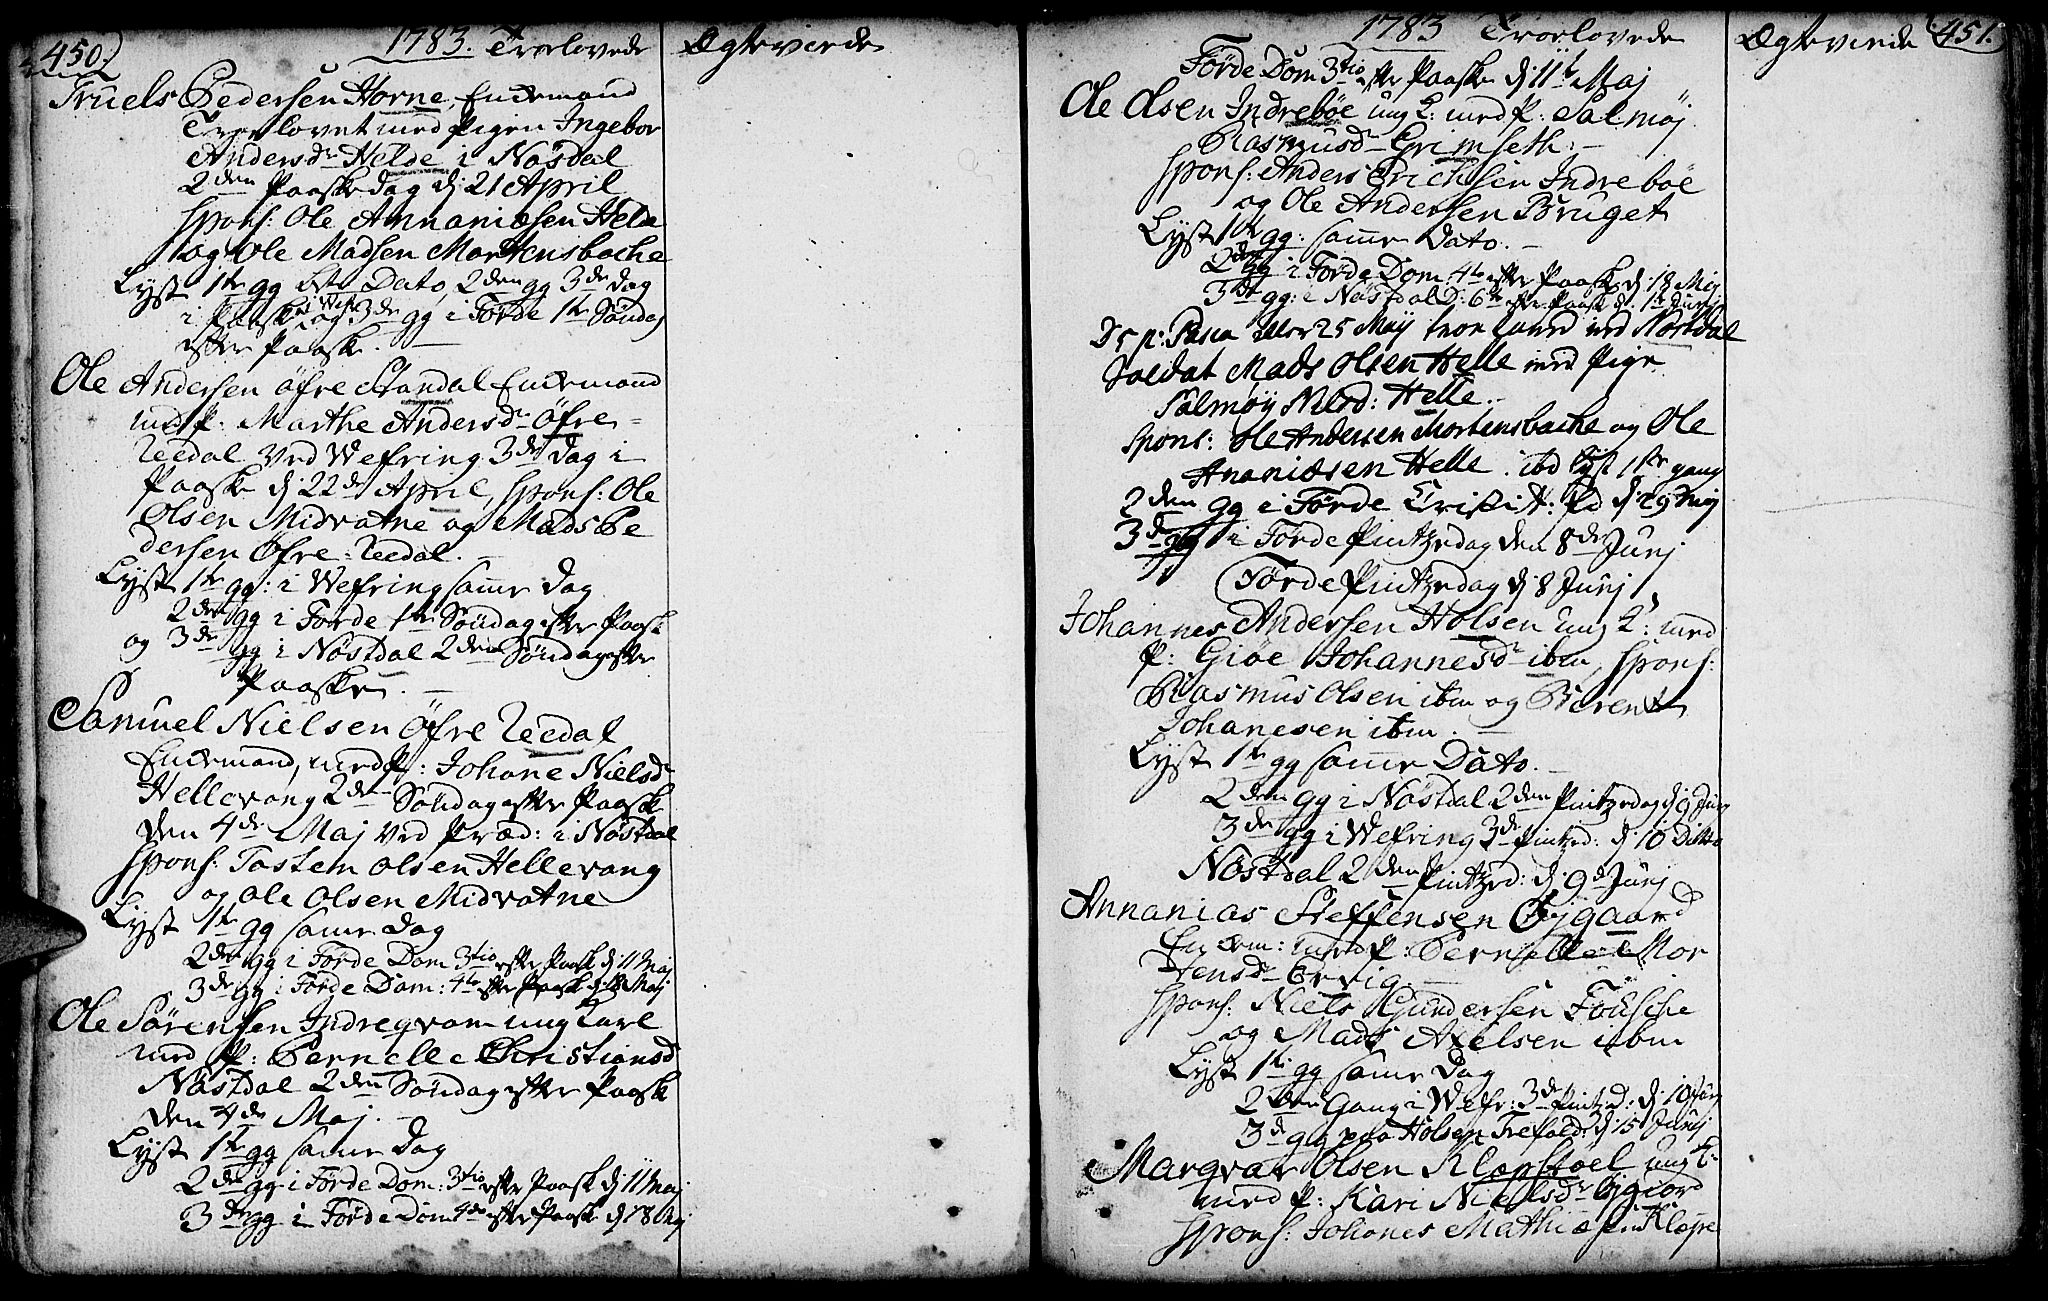 450.) 1783. Troelovede Ægteviede
Truels Pedersen Horne, Enkemand
Troelovet med Pigen Ingebor
Andersdr Helde i Nöstdal
2den Paaske dag dj 21 April
Spons: Ole Annaniæsen Helde
og Ole Madsen Mortensbache
Lyst 1te gg bete Dato, 2den gg 3de dag
i Paaske i Wefr og 3de gg i Förde 1te Söndag
efter Paaske.
Ole Andersen öfre Standal Enkemand
med P: Marthe Andersdr Öfre-
Reedal ved Wefring 3de Dag i
Paaske dj 22de April, Spons: Ole
Olsen Midvatne og Mads Pe
dersen Öfre-Reedal.
Lyst 1te gg: i Wefring samme dag
2den gg i Förde 1te Söndag efter Paask
og 3de gg i Nöstdal 2den Söndag efter
Paasken.
Samuel Nielsen Öfre Reedal
Enkemand, med P: Johane Nielsdr
Hellevang 2den Söndag efter Paaske
den 4de Maj ved Præd: i Nöstdal
Spons: Tostem Olsen Hellevang
og Ole Olsen Midvatne
Lyst 1te gg samme dag
2den gg i Förde Dom 3tio efter Paask dj 11 Maj
3de gg i Förde Dom: 4to efter Paask dj 18 Maj
Ole Sörensen Indreqvam ung Karl
med P: Pernelle Christiansd
Nöstdal 2den Söndag efter Paask
den 4de Maj.
Lyst 1te gg samme dag
2den gg i Förde Dom: 3tio efter Paask dj 11 Maj
3de gg i Förde Dom 4to efter Paask dj 18 Maj
1783 Troelovede Ægteviede 451.
Förde Dom 3tio efter Paaske dj 11te Maj
Ole Olsen Indreböe ung K: med P: Salmöj
Rasmusd Grimseth.
Spons: Anders Erichsen Indreböe
og Ole Andersen Bruget
Lyst 1te gg: samme Dato.
2den gg i Förde Dom 4to efter Paaske dj 18 Maj
3de gg: i Nöstdal D: 6te efter Paask d: 1te Junj
D 5 p: Pasca eller 25 Maji troelovede ved Nöstdal
Soldat Mads Olsen Helle med Pige
Salmöy Nilsd: Helle.
Spons: Ole Andersen Mortensbache og Ole
Ananiæsen Helle. ibd lyst 1ste gang
2den gg i Förde Cristi H: Fd dj 29 Maj
3de gg i Förde Pintzedag den 8de Junj
Förde Pintzedag dj 8 Junj
Johannes Andersen Holsen ung K: med
P: Giöe Johannesdr ibm, Spons:
Rasmus Olsen ibm og Berent
Johanesen ibm.
Lyst 1te gg samme Dato.
2den gg i Nöstdal 2den Pintzedag dj 9 Junj
3de gg i Wefring 3de Pintzed: dj 10 Ditto
Nöstdal 2den Pintzed: dj 9de Junj
Annanias Steffensen Öygaard
Enkem: med P: Pernelle Mor
tensdr Ervig
Spons: Niels Gundersen Fousche
og Mads Axelsen ibm
Lyst 1te gg samme Dag
2den Gang i Wefr: 3de Pintzd: dj 10 Junj
3de gg paa Holsen Trefold: dj 15 Junj
Marqvar Olsen Klopstöel ung K:
med P: Kari Nielsdr
Spons: Johanes Mathiæsen Klopse